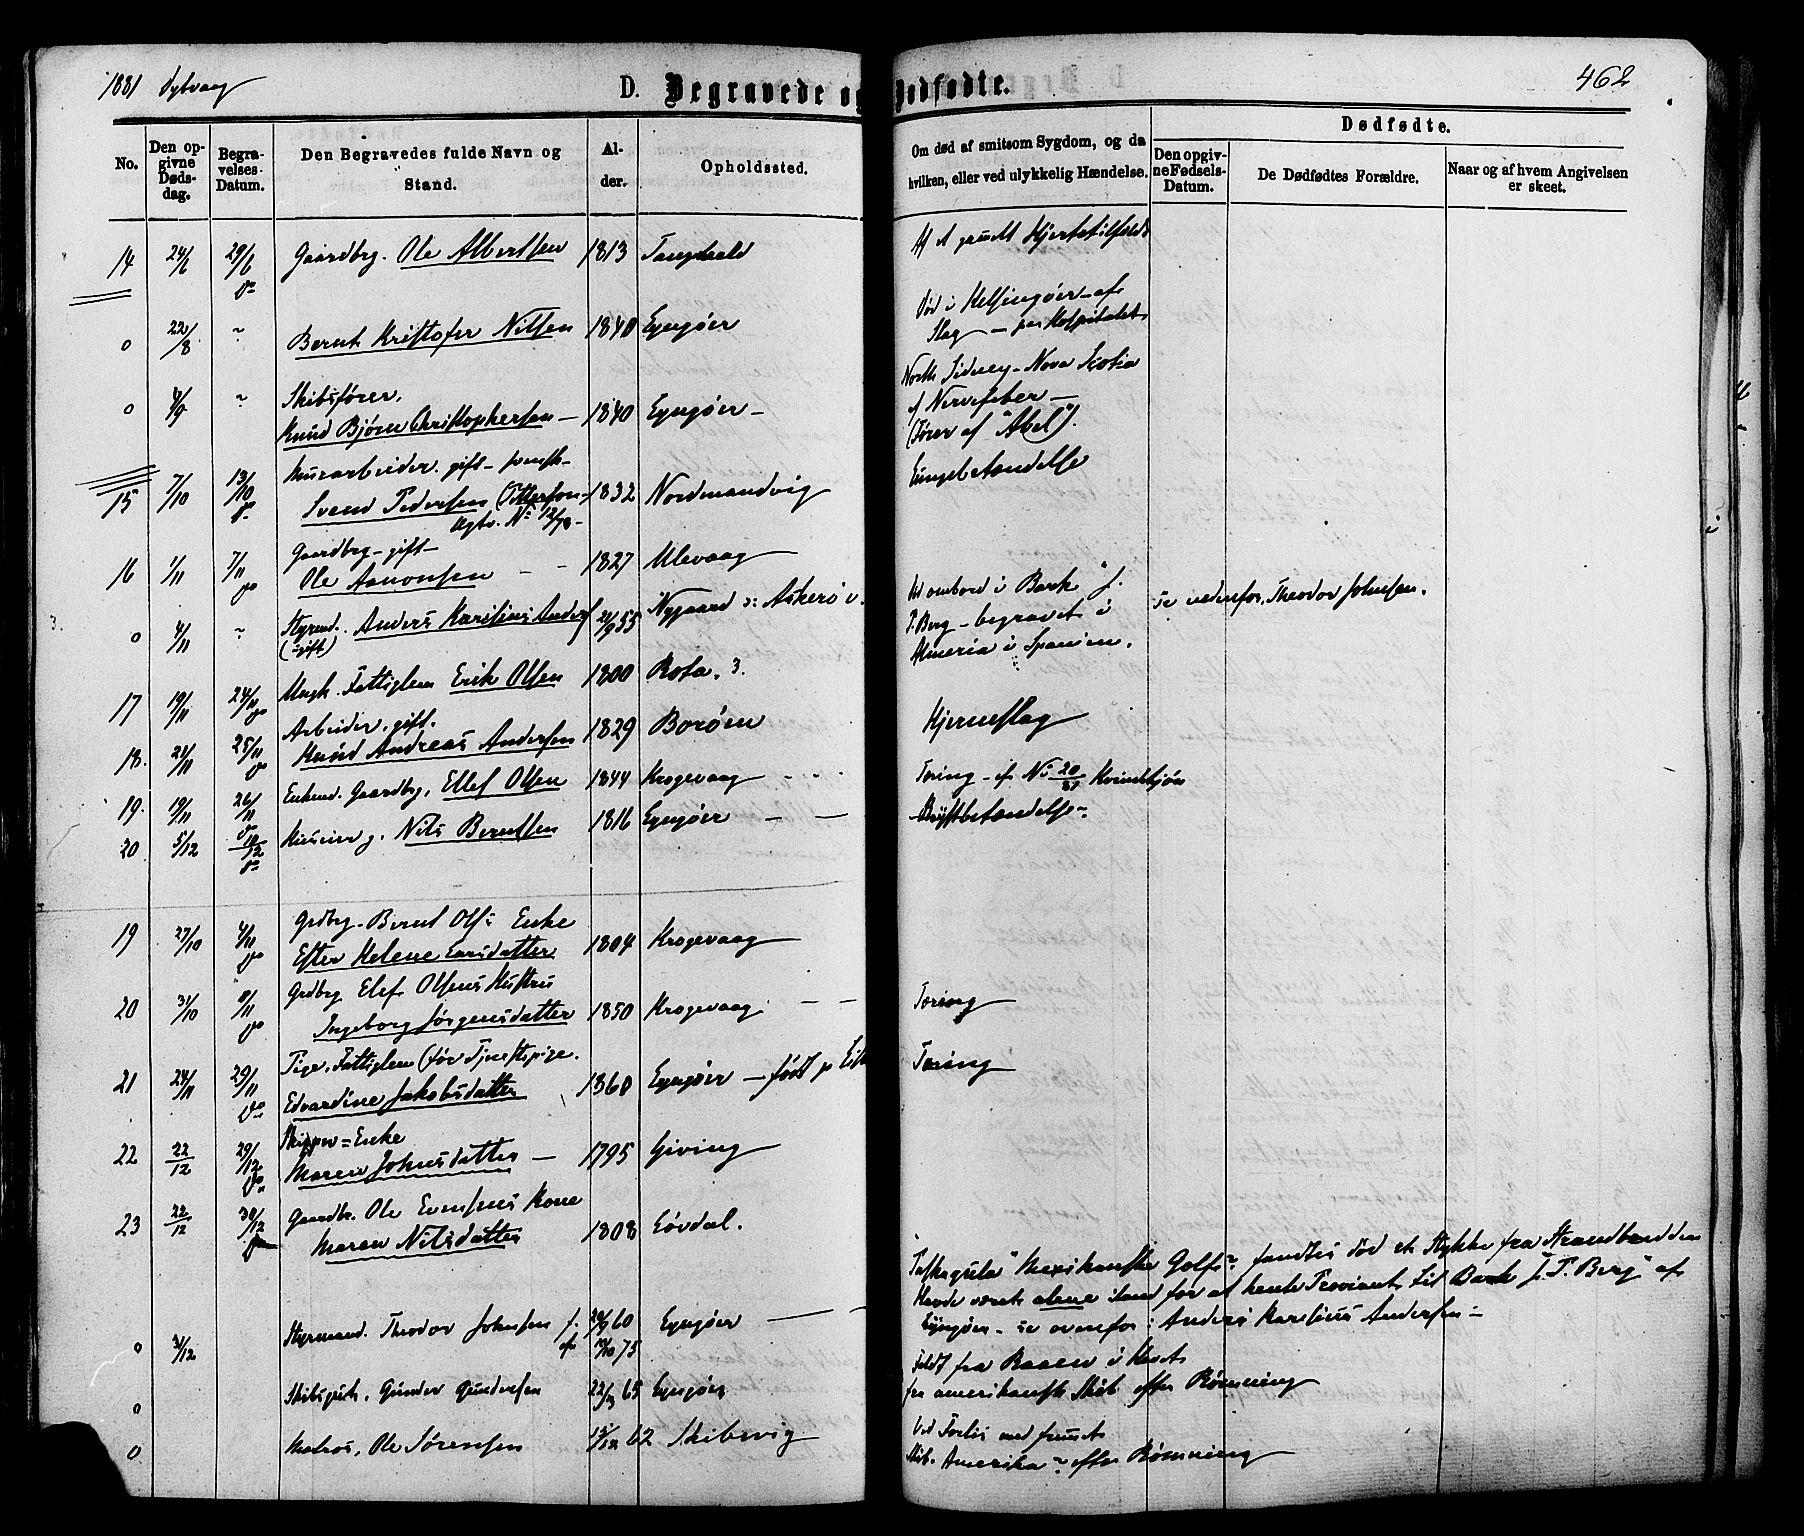 1881 Dybvaag
D. Begravede og Dødfødte.
462
No.
Den opgivne Dødsdag.
Begravelses-Datum.
Den Begravedes fulde Navn og Stand.
Alder.
Opholdssted.
Om død af smitsom Sygdom, og da hvilken, eller ved ulykkelig Hændelse.
Dødfødte.
Den opgivne Fødsels-Datum.
De Dødfødtes Forældre.
Naar og af hvem Angivelsen er skeet.
14 24/6 29/6 Gaardbrg. Ole Albertsen 1813 Tangeheld Af et gammelt Hjertetilfælde
0 22/8 " Bernt Kristofer Nilsen 1840 Lyngøer Død i Helsingøer af
Slag — paa Hospitalet
0 4/9 " Skibsfører,
Knud Bjørn Christophersen — 1840 Lyngøer — North Sidney - Nova Scotia
af Nervefeber —
(Fører af "Abel").
15 7/10 13/10 Murarbeider. gift - svensk -
Svend Pedersen (Pettersson - 1832 Nordmandvig Lungebetændelse
Udgtv. No 12/78 -
16 1/11 7/11 Gaardbrg - gift -
Ole Aanonsen — — 1827 Ulevaag
0 4/11 " Styrmd. Anders Karelius Anders 21/9 55 Nygaard : Askerø
(ugift) ombord i Bark "J.
P. Berg - begravet i
Almeria i Spanien.
se nedenfor, Theodor Johnsen.
17 19/11 24/11 Ungk. Fattiglem Erik Olsen 1800 Rota. 3.
18. 21/11 25/11 Arbeider, gift.
Knud Andreas Andersen 1829 Borøen Hjerneslag
19. 19/11 26/11 Enkemd. Gaardbrg, Ellef Olsen 1844 Krogevaag Tæring - cf No 20/81 Kvindekjøn
20 5/12 10/12 Huseier g. Nils Berntsen 1816 Lyngøer — — Brystbetændelse
19 27/10 4/11 Grdbrg. Bernt Ols: Enke
Ester Helene Larsdatter 1804 Krogevaag
20 31/10 8/11 Grdbrg Elef Olsens Hustru
Ingeborg Jørgensdatter 1850 Krogevaag — — Tæring
21 24/11 29/11 Pige, Fattiglem (før Tjenestepige.
Edvardine Jakobsdatter 1860 Lyngøer — født p Tæring
22 22/12 29/12 Skipper = Enke
Maren Johnsdatter — 1795 Giving
23 22/12 30/12 Gaardbr. Ole Evensens Kone
Maren Nilsdatter 1808 Løvdal.
Paskagula "Mexikanske Golf". fandtes død et Stykke fra Strandbredden
Havde været alene iland for at hente Proviant til Bark "J. P. Berg" af
Lyngøer - se ovenfor: Anders Karelius Andersen —
0 3/12 Styrmand. Theodor Johnsen f. 60 Lyngøer —
75
0 Skibsgut, Gunder Gundersen 22/3 65 Lyngøer Faldt fra Raaen i Havet
fra amerikansk Skib efter Rømning
0 Matros, Ole Sørensen 62 Skibsvig Ved Forlis med fremmet
Skib. Amerika - efter Rømning